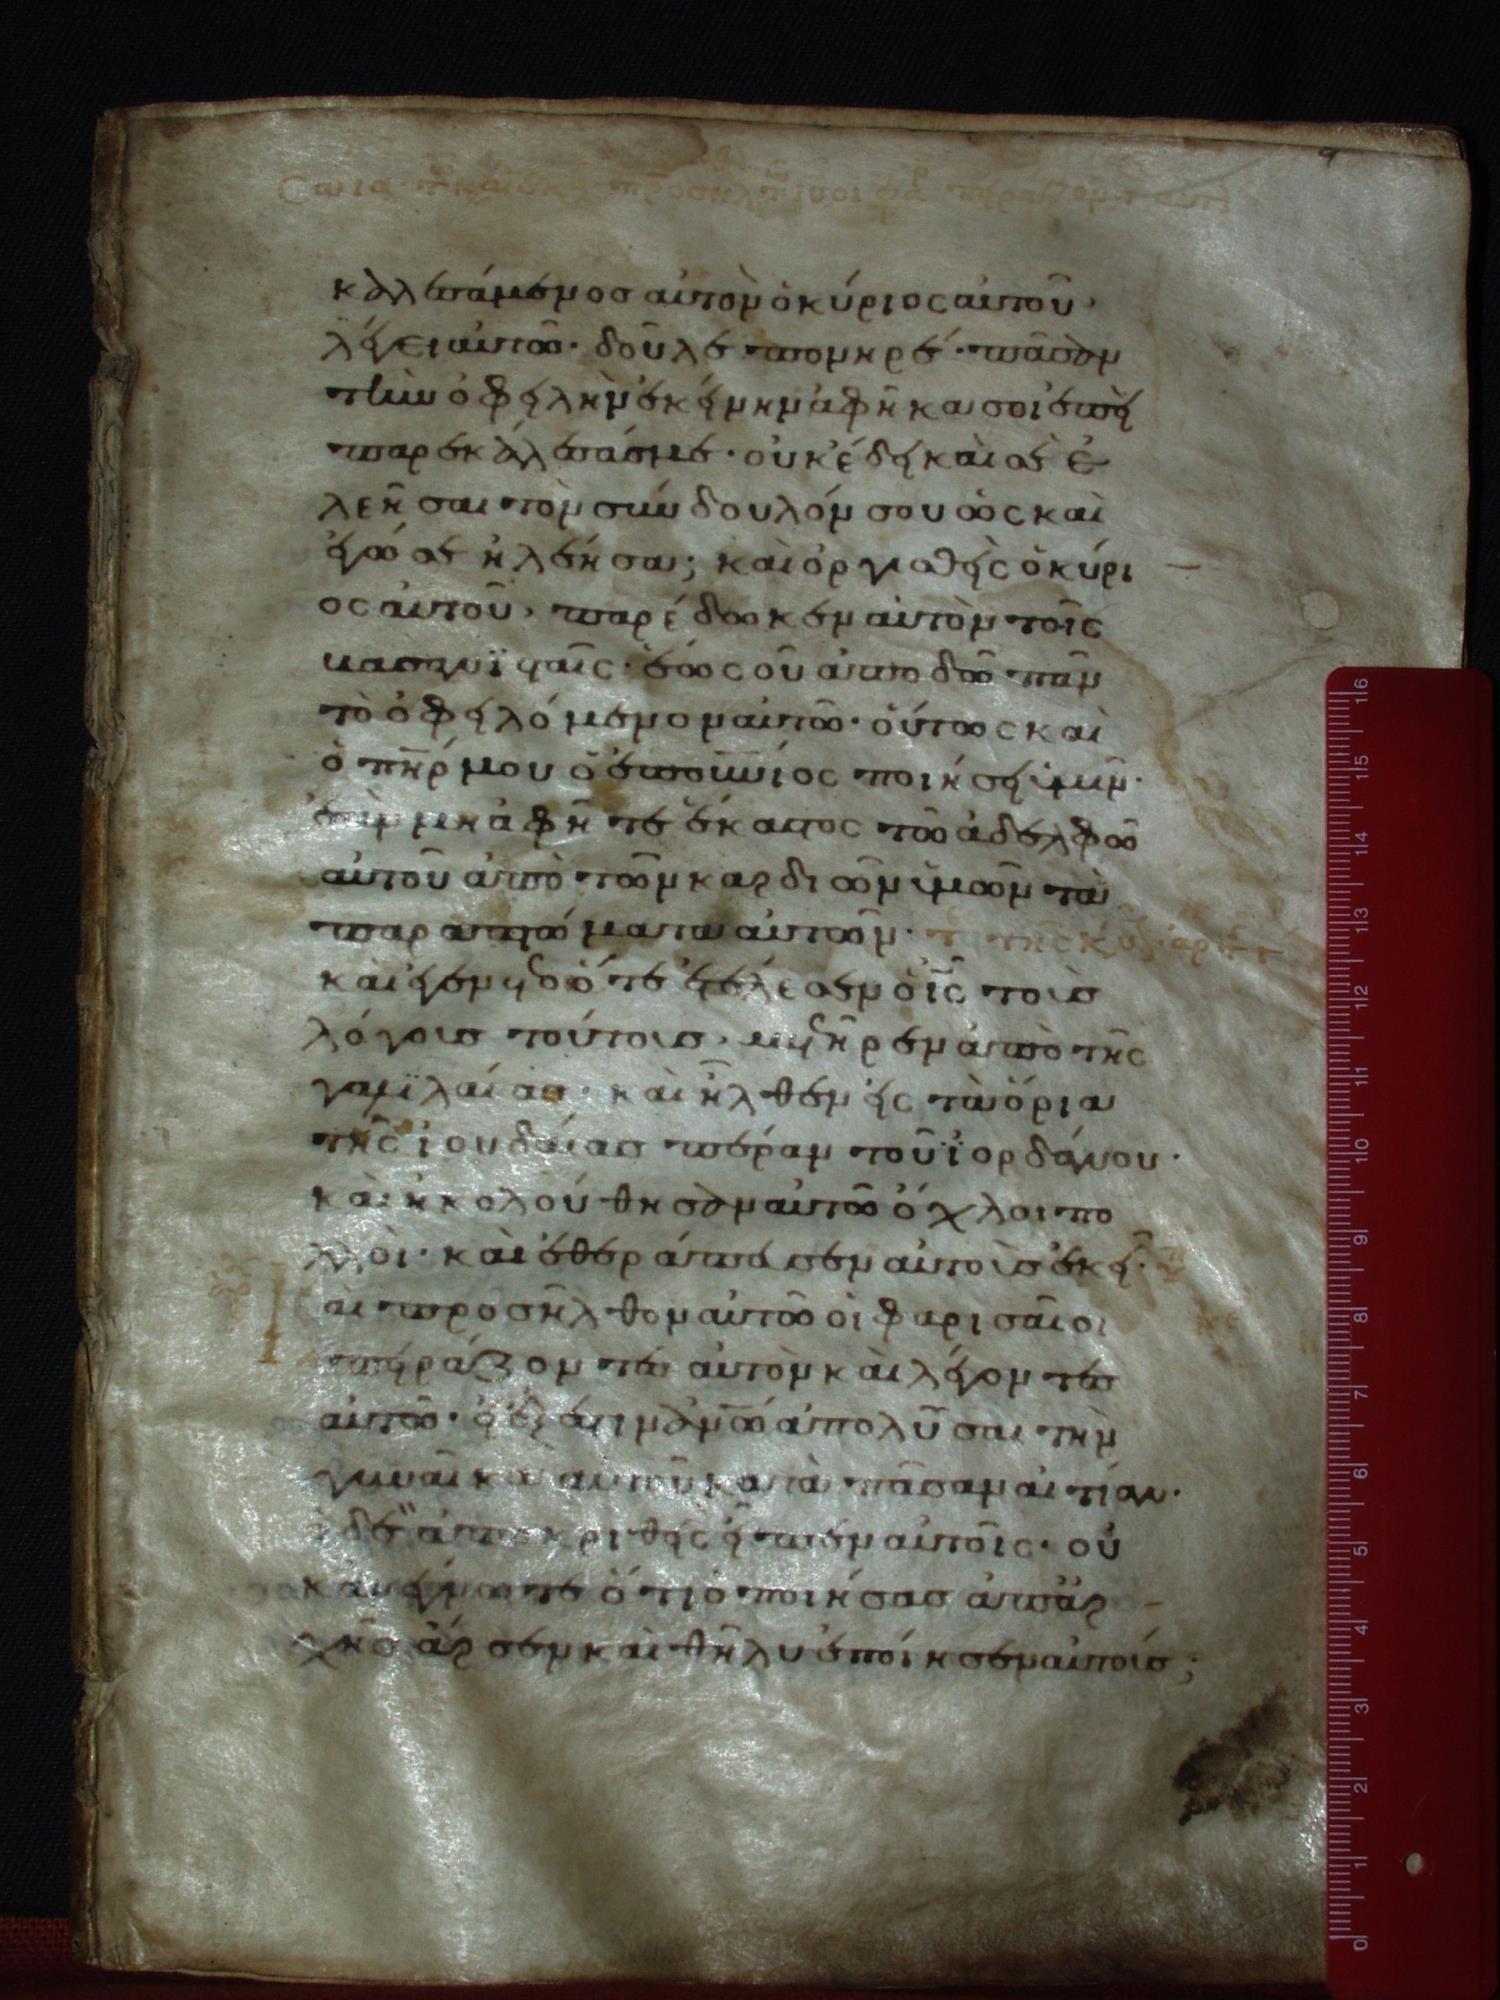 καλεσάμενος αὐτὸν ὁ κύριος αὐτοῦ,
λέγει αὐτῶ· δοῦλε πονηρέ· πᾶσαν
τὴν ὀφειλὴν ἐκείνην ἀφῆκα σοι ἐπεὶ
παρεκάλεσάς με· οὐκ ἔδει καὶ σὲ ἐ
λεῆσαι τὸν σύνδουλόν σου ὡς καὶ
ἐγώ σε ἠλέησα; καὶ ὀργισθεὶς ὁ κύρι
ος αὐτοῦ, παρέδωκεν αὐτὸν τοῖς
βασανϊσταῖς· ἕως οὗ ἀποδῶ πᾶν
τὸ ὀφειλόμενον αὐτῶ· οὕτως καὶ
ὁ πηρ μου ὁ ἐπουνιος ποιήσει ὑμῖν·
ἐὰν μὴ ἀφῆτε ἕκαστος τῶ ἀδελφῶ
αὐτοῦ ἀπὸ τῶν καρδιῶν ὑμῶν τὰ
παραπτώματα αὐτῶν·
καὶ ἐγένετο ὅτε ἐτέλεσεν ὁ ις τοὺς
λόγους τούτους, μετῆρεν ἀπὸ τῆς
γαλϊλαίας· καὶ ἦλθεν εἰς τὰ ὅρια
τῆς ἰουδαίας πέραν τοῦ ϊορδάνου·
καὶ ἠκολούθησαν αὐτῶ ὄχλοι πο
λλοὶ· καὶ ἐθεράπευσεν αὐτοὺς ἐκεῖ·
αι προσῆλθον αὐτῶ οἱ φαρισαῖοι
πειράζοντες αὐτὸν καὶ λέγοντες
αὐτῶ· εἰ ἔξεστιν ἀνῶ ἀπολῦσαι τὴν
γυναῖκα αὐτοῦ κατὰ πᾶσαν αἰτίαν·
ὁ δὲ ἀποκριθεὶς εἶπεν αὐτοῖς· οὐ
κ ἀνέγνωτε ὅτι ὁ ποιήσας ἀπ' ἀρ
χῆς ἄρσεν καὶ θῆλυ ἐποίησεν αὐτούς;